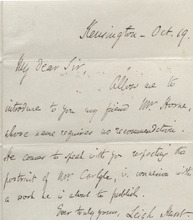 Kensington - Oct. 19.
My Dear Sir,
Allow me to
introduce to you my friend Mr. Horne,
whose name requires no recommendation.
He comes to speak with you respecting the
portrait of Mr. Carlyle, in connexion with
a work he is about to publish.
Ever truly yours, Leigh Hunt